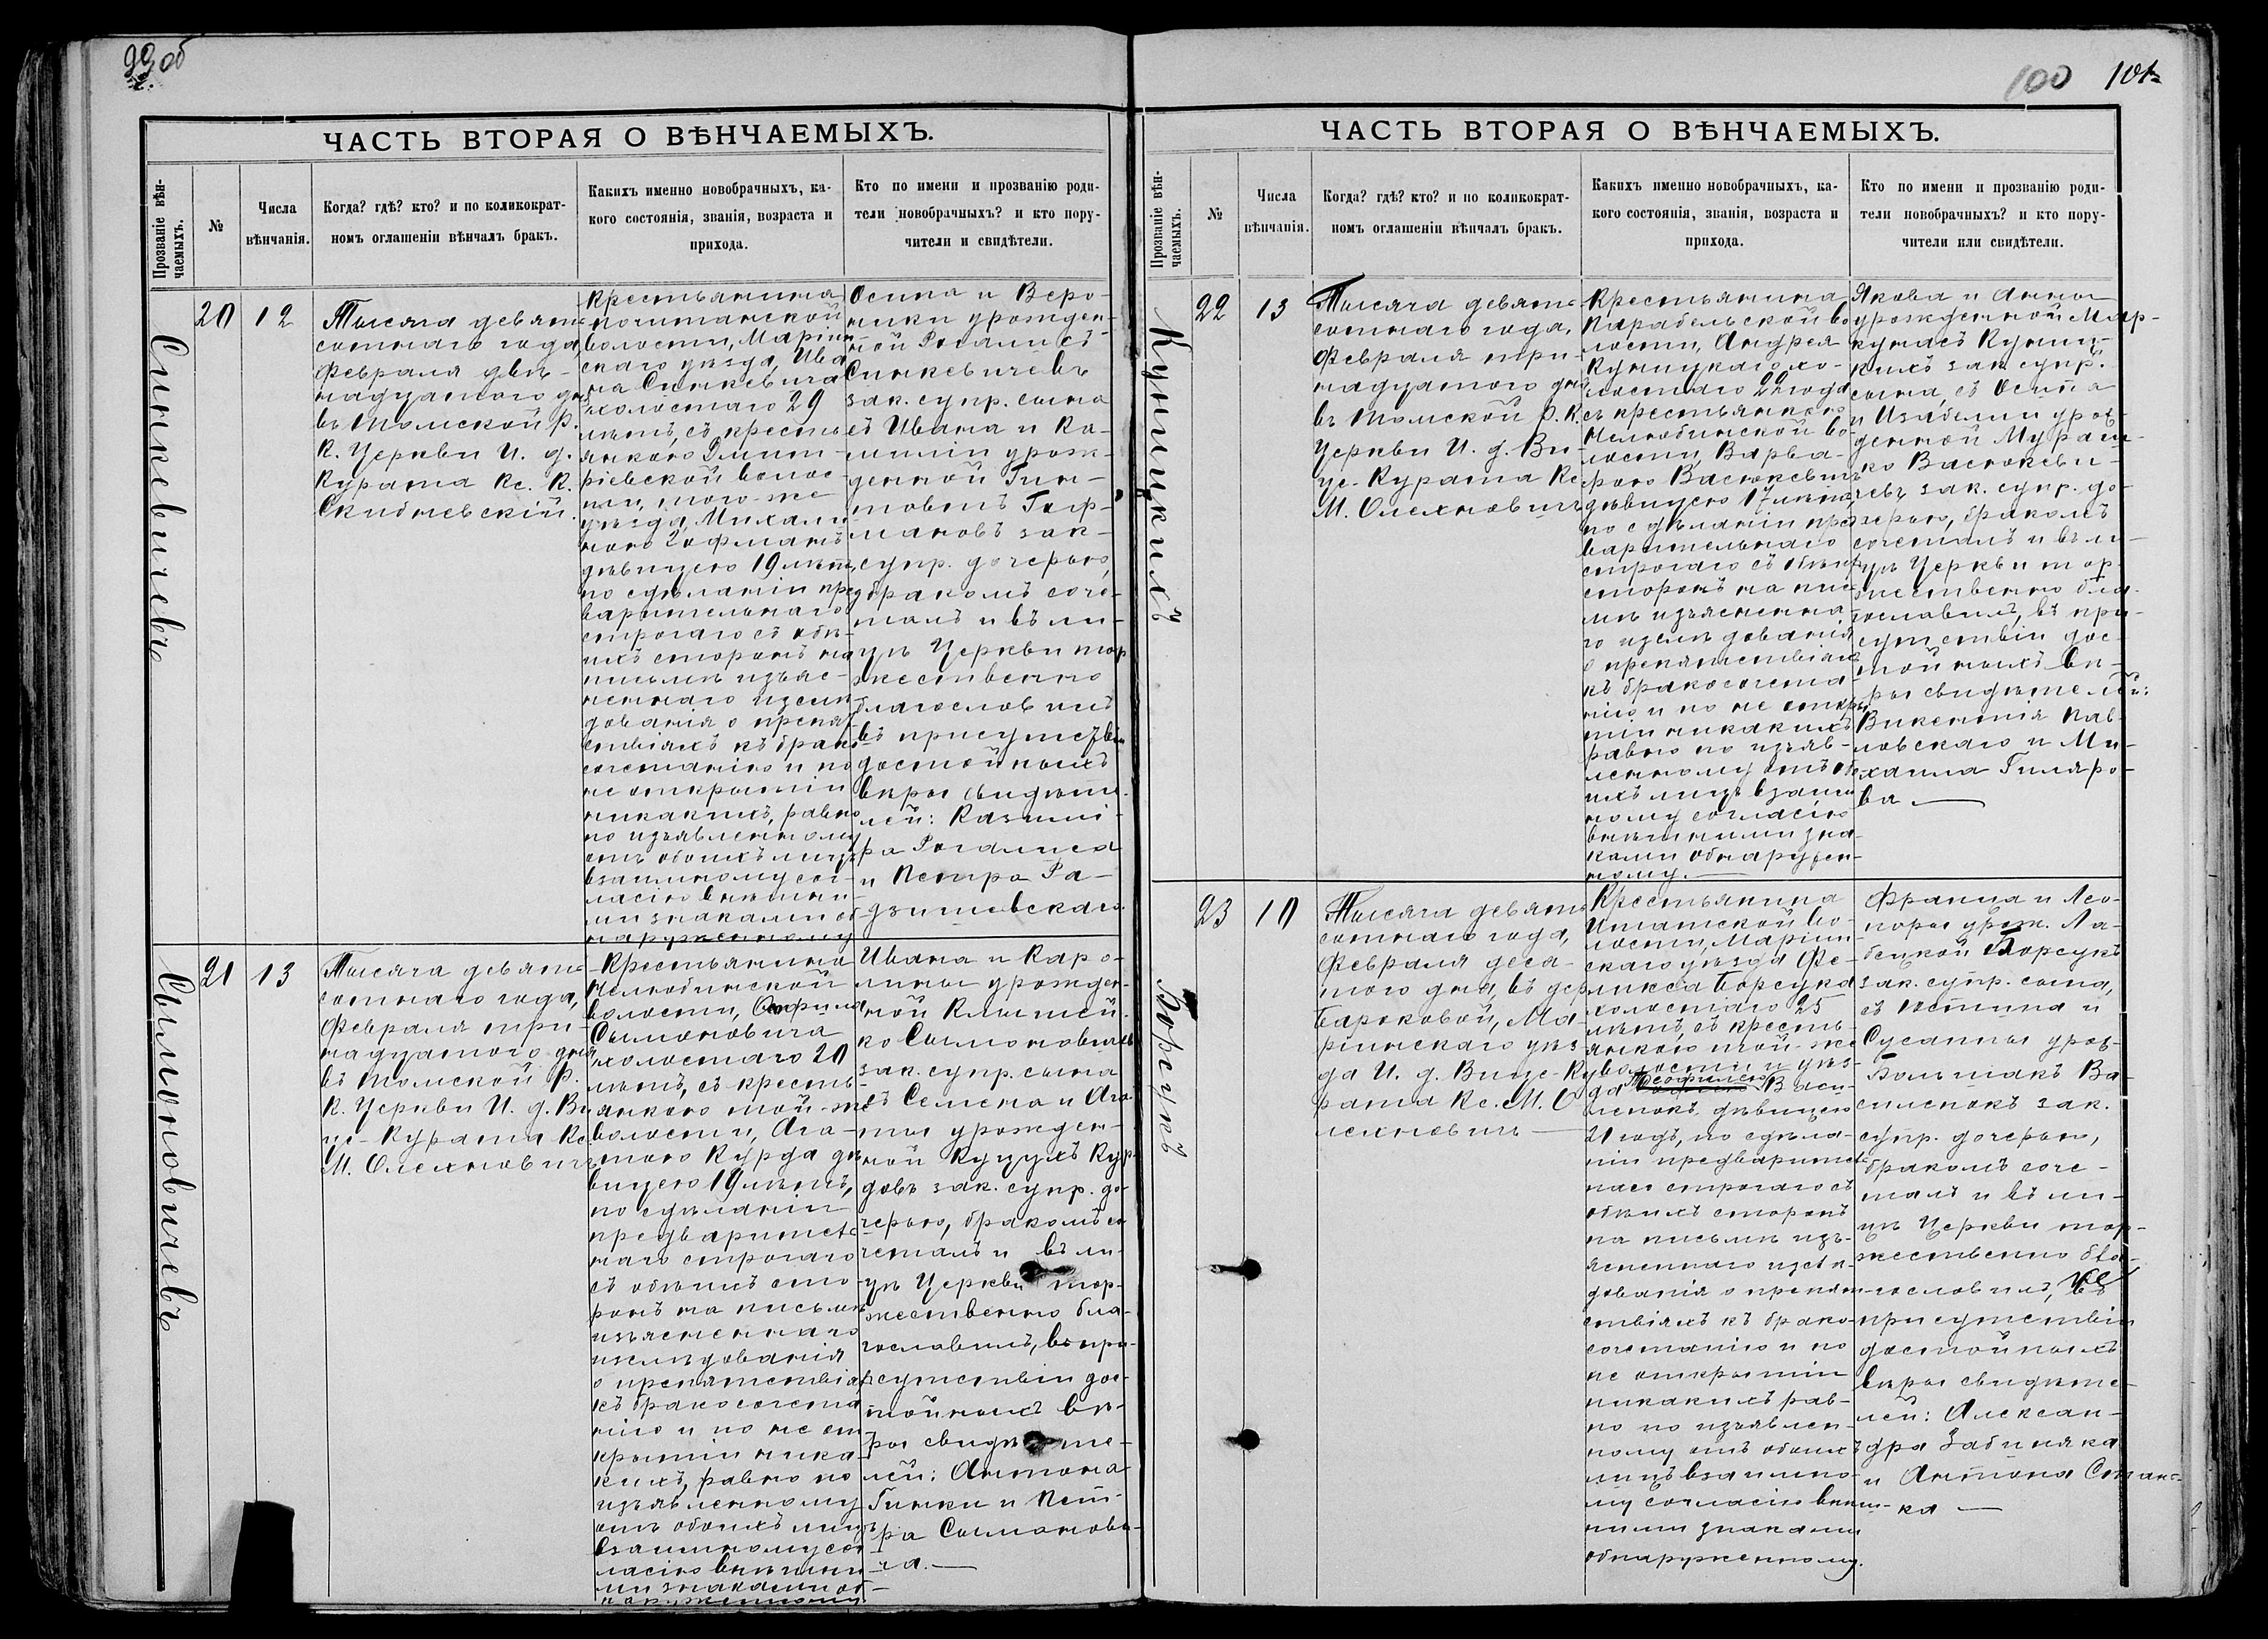 99 об
100 101
ЧАСТЬ ВТОРАЯ О ВѢНЧАЕМЫХЪ.
Прозваніе вѣн-
чаемыхъ.
№
Числа
вѣнчанія.
Когда? гдѣ? кто? и по коликократ-
номъ оглашеніи вѣнчалъ бракъ.
Какихъ именно новобрачныхъ, ка-
кого состоянія, званія, возраста и
прихода.
Кто по имени и прозванію роди-
тели новобрачныхъ? и кто пору-
чители и свидѣтели.
Синкевичевъ
20
12
Тысяча девять
сотнаго года,
Февраля двѣ-
надцатого дня
въ Томской Р.
К. Церкви И. д.
Курата Кс. К.
Скибневскій.
Крестьянина
почитанской
волости, Маріин
скаго уѣзда, Ива
на Синкевича
холостаго 29
лѣтъ, съ кресть
янкою Дмит-
ріевской волос
ти, того-же
уѣзда, Михали
ною Гофманъ
дѣвицею 19 лѣтъ,
по сдѣланіи пред
варительнаго
строгаго съ обѣ-
ихъ сторонъ на
письмѣ изъяс-
неннаго изслѣ
дованія о препят
ствіяхъ къ брако
сочетанію и по
не открытіи
никакихъ, равно
по изъявленному
отъ обоихъ лицъ
взаимному сог-
ласію внѣшни-
ми знаками об-
наруженному
Осипа и Веро-
ники урожден-
ной Рогалисъ
Синкевичевъ
зак. супр. сына
съ Ивана и Ка-
милии урож-
денной Гин-
товтъ Гоф-
мановъ зак-
супр. дочерью,
бракомъ соче-
талъ и въ ли-
цѣ Церкви тор
жественно
благословилъ
въ присутствіи
достойныхъ
вѣры свидѣте-
лей: Казими-
ра Рогалиса
и Петра Ра-
дзишевскаго
Сымоновичевъ
21
13
Тысяча девять
сотнаго года,
Февраля три-
надцатого дня
въ Томской Р.
К. Церкви И. д. Ви
це-Курата Кс.
М. Олехновичъ
Крестьянина
Нелюбинской
волости,
Сымоновича
холостаго 20
лѣтъ, съ кресть
янкою той-же
волости, Ага-
тою Курда дѣ
вицею 19 лѣтъ,
по сдѣланіи
предварител
наго строгаго
съ обѣихъ сто-
ронъ на письмѣ
изъясненнаго
изслѣдованія
о препятствіях
къ бракосочета
нію и по не от
крытіи ника-
кихъ, равно по
изъявленному
отъ обоихъ лицъ
взаимному сог
ласію внѣшни
ми знаками об-
наруженному.
Ивана и Каро-
лины урожден-
ной Клышей-
ко Сымоновичевъ
зак. супр. сына
съ Семена и Ага
ты урожден-
ной Куцухъ Кур-
довъ зак. супр. до-
черью, бракомъ со
четалъ и въ ли-
цѣ Церкви тор-
жественно бла-
гославилъ, въ при-
сутствіи дос-
тойныхъ вѣ-
ры свидѣте-
лей: Антона
Гинки и Пет-
ра Сымонови-
ча.
ЧАСТЬ ВТОРАЯ О ВѢНЧАЕМЫХЪ.
Прозваніе вѣн-
чаемыхъ.
№
Числа
вѣнчанія.
Когда? гдѣ? кто? и по коликократ-
номъ оглашеніи вѣнчалъ бракъ.
Какихъ именно новобрачныхъ, ка-
кого состоянія, званія, возраста и
прихода.
Кто по имени и прозванію роди-
тели новобрачныхъ? и кто пору-
чители или свидѣтели.
Куницкихъ
22
13
Тысяча девять
сотнаго года,
Февраля три-
надцатого дня
въ Томской Р. К.
Церкви И. д. Ви-
це-Курата Кс
М. Олехновичъ
Крестьянина
Карабельской во
лости, Андрея
Куницкаго хо-
лостаго 22 года
съ крестьянкою
Нелюбинской во-
лости, Варва-
рою Васюкевичъ
дѣвицею 17 лѣтъ,
по сдѣланіи пред
варительнаго
строгаго съ обѣих
сторонъ на пис
мѣ изъясненна
го изслѣдованія
о препятствіях
къ бракосочета-
нію и по не откры
тіи никакихъ
равно по изъяв-
ленному отъ обо
ихъ лицъ взаим
ному согласію
внѣшними зна-
ками обнаружен-
ному.
Якова и Анны
урожденной Мар-
кунасъ Куниц-
кихъ зак. супр.
сына, съ Осипа
и Изабелли урож-
денной Мураш-
ко Васюкеви-
чевъ зак. супр. до-
черью, бракомъ
сочеталъ и въ ли-
цѣ Церкви тор-
жественно бла-
гославилъ, въ при-
сутствіи дос-
тойныхъ вѣ-
ры свидѣтелей:
Викентія Пав-
ловскаго и Ми-
хаила Гиляро-
ва
Борсукъ
23
10
Тысяча девять
сотнаго года,
Февраля деся-
того дня, въ дер
Барковой, Ма-
ріинскаго уѣз-
да И. д. Вице-Ку
рата Кс. М. О
лехновичъ
Крестьянина
Итатской во-
лости, Маріин
скаго уѣзда Фе-
ликса Борсука
холостаго 25
лѣтъ, съ кресть-
янкою той-же
волости и уѣз-
да Теофилею Васи-
ленокъ дѣвицею
21 годъ, по сдѣла-
ніи предварител
наго строгаго съ
обѣихъ сторонъ
на письмѣ изъ-
ясненнаго изслѣ-
дованія о препят-
ствіяхъ къ брако-
сочетанію и по
не открытіи
никакихъ рав-
но по изъявлен-
ному отъ обоихъ
лицъ взаимно-
му согласію внѣш-
ними знаками
обнаруженному.
Франца и Лео-
норы урож. Ла-
бецкой Борсукъ
зак. супр. сына,
съ Устина и
Сусанны урож-
Большакъ Ва-
силенокъ зак.
супр. дочерью,
бракомъ соче-
талъ и въ ли-
цѣ Церкви тор-
жественно бла-
гословилъ, въ
присутствіи
достойныхъ
вѣры свидѣте-
лей: Алексан-
дра Забиняка
и Антона Стань-
ка